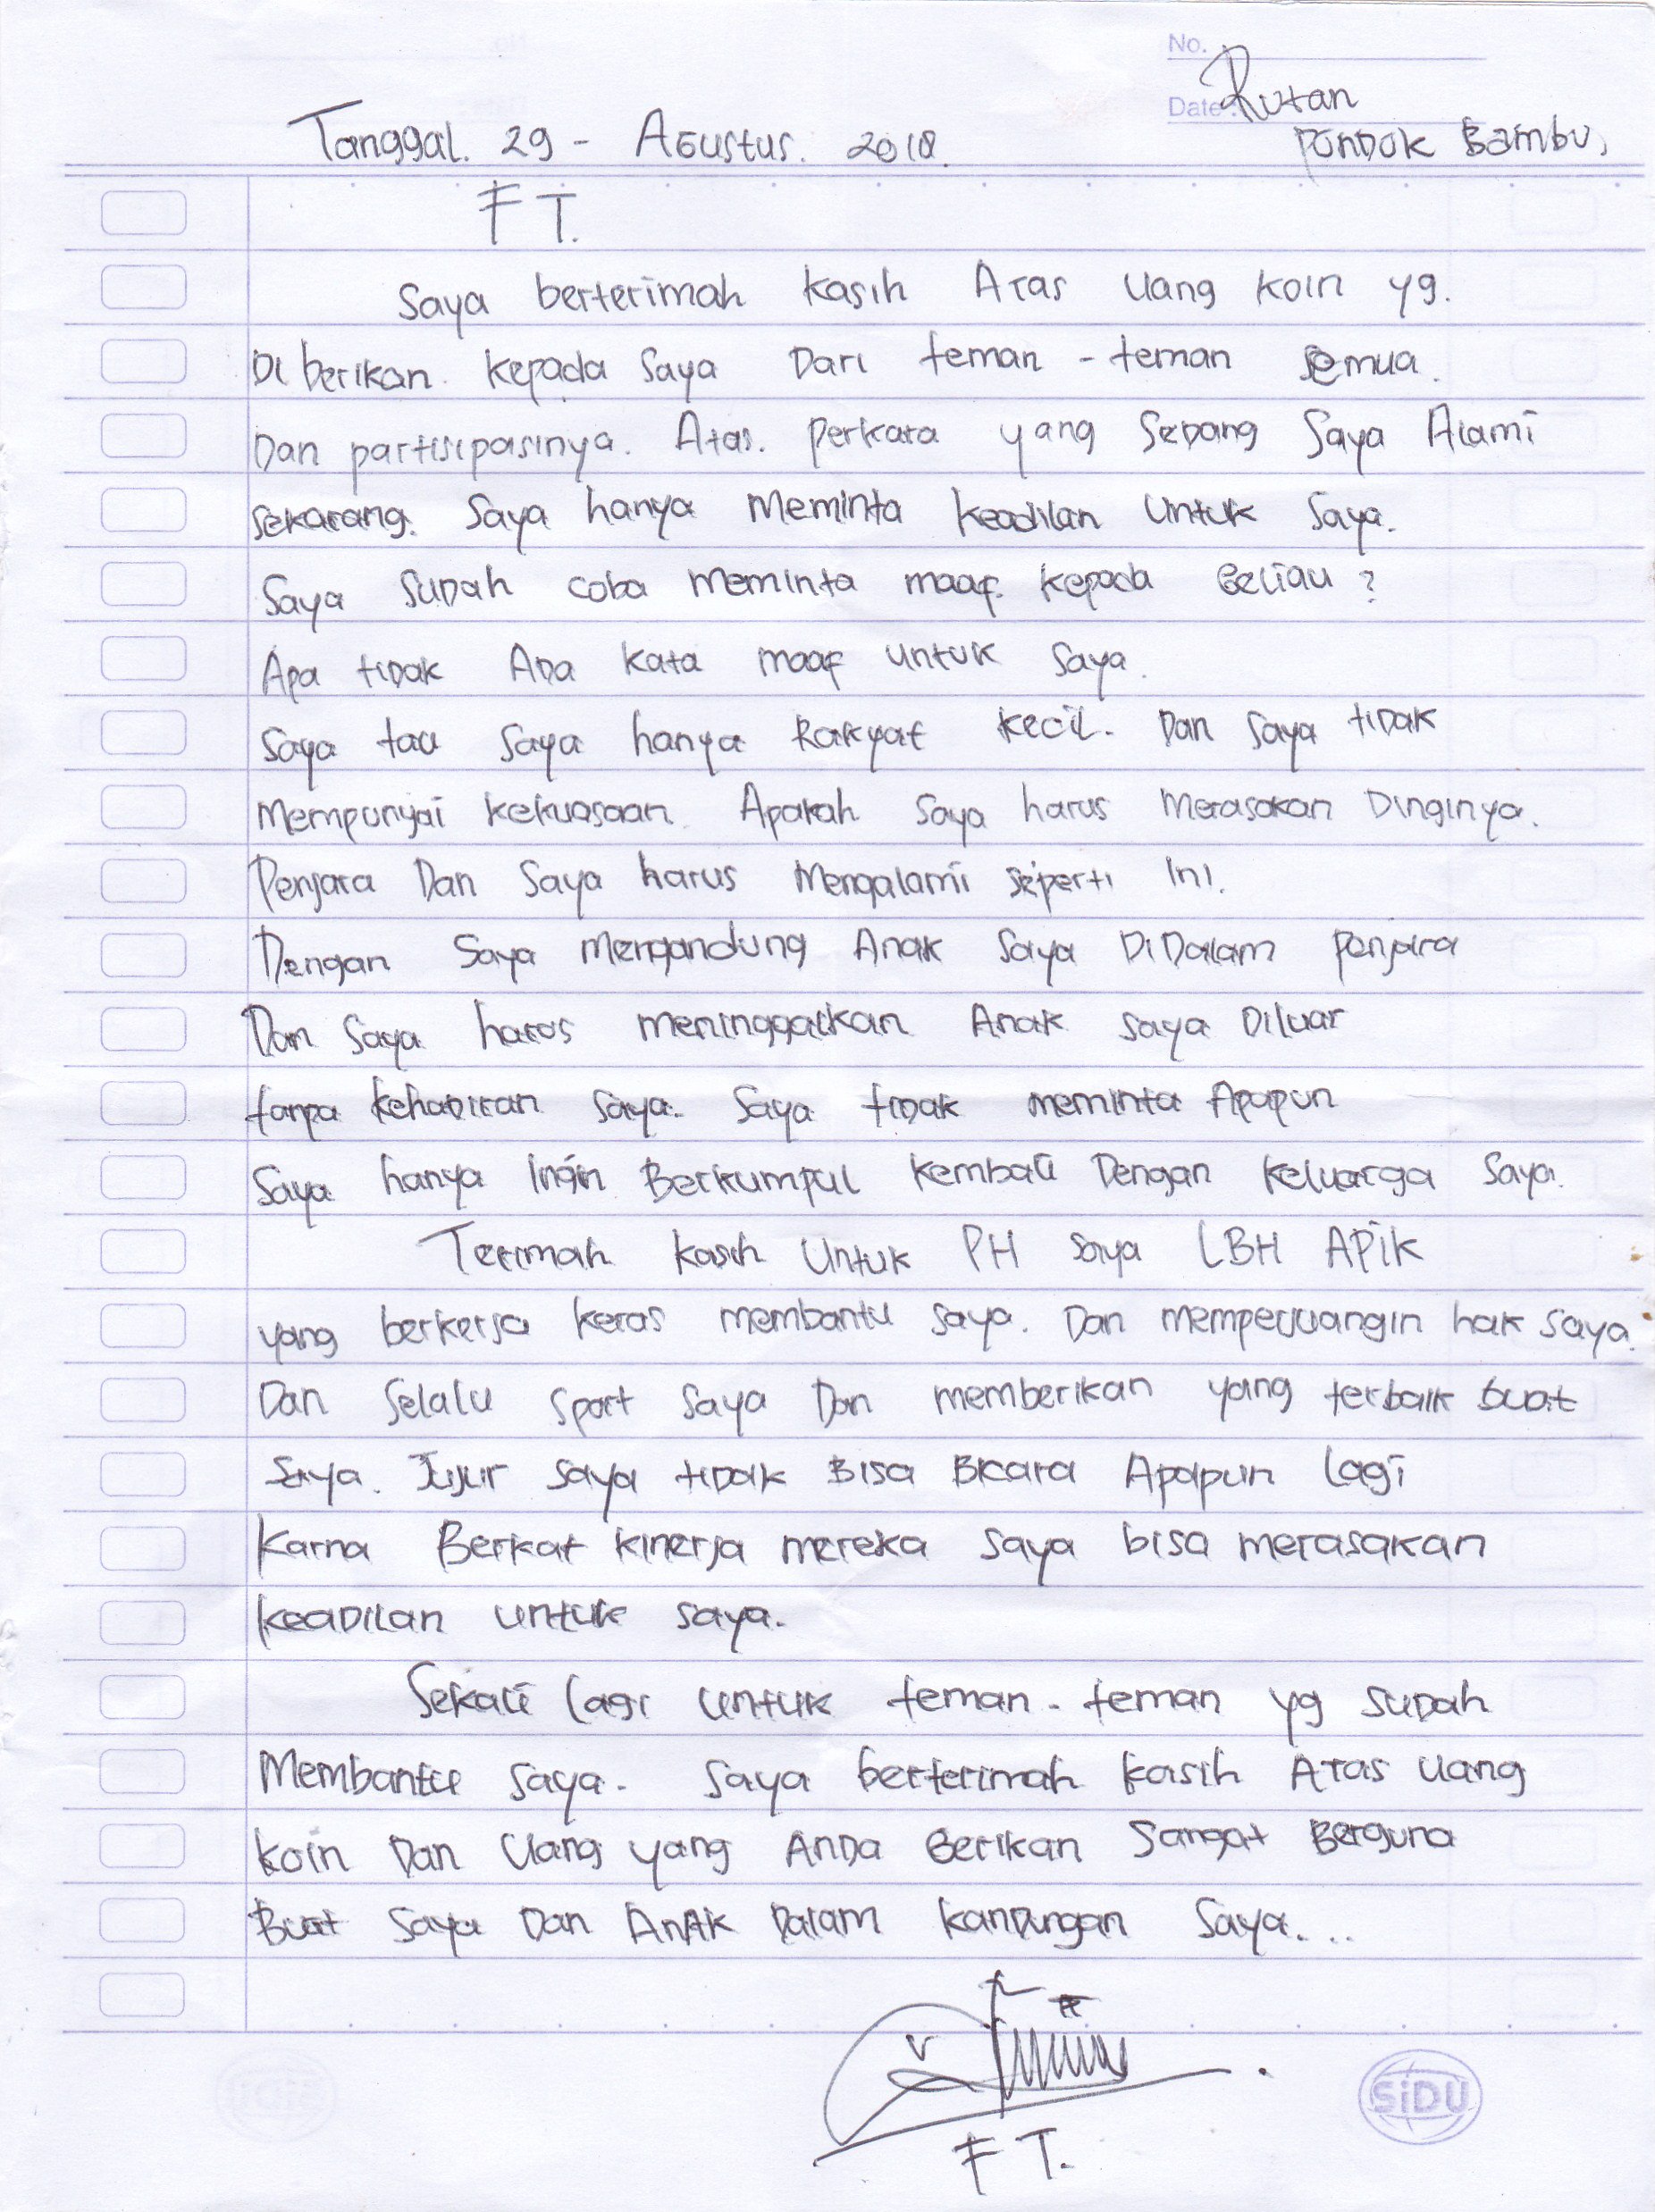 No.
Date:
Rutan
Pondok Bambu,
Tanggal. 29 - Agustus. 2018.
FT.
Saya berterimah kasih Atas Uang koin yg.
Di berikan. kepada Saya Dari teman - teman semua.
Dan partisipasinya. Atas. perkara yang Sedang Saya Alami
sekarang. Saya hanya Meminta keadilan Untuk Saya.
Saya sudah coba meminta maaf. kepada Beliau ?
Apa tidak Ada kata maaf untuk Saya.
Saya tau saya hanya Rakyat kecil. Dan Saya tidak
Mempunyai kekuasaan. Apakah Saya harus Merasakan Dinginya.
Penjara Dan Saya harus Mengalami seperti ini.
Dengan Saya mengandung Anak Saya DiDalam penjara
Dan Saya harus meninggalkan Anak saya Diluar
tanpa kehadiran saya. Saya tidak meminta Apapun
Saya hanya Ingin Berkumpul kembali Dengan keluarga Saya.
Terimah kasih Untuk PH saya LBH APiK
yang berkerja keras membantu saya. Dan memperjuangin hak saya.
Dan Selalu sport saya Dan memberikan yang terbaik buat
Saya. Jujur saya tidak Bisa Bicara Apapun lagi
Karna Berkat kinerja mereka saya bisa merasakan
keadilan untuk saya.
Sekali lagi untuk teman - teman yg sudah
Membantu saya. Saya berterimah kasih Atas Uang
koin Dan Uang yang Anda Berikan Sangat Berguna
Buat Saya Dan AnAk Dalam kandungan Saya...
FT.
SiDU